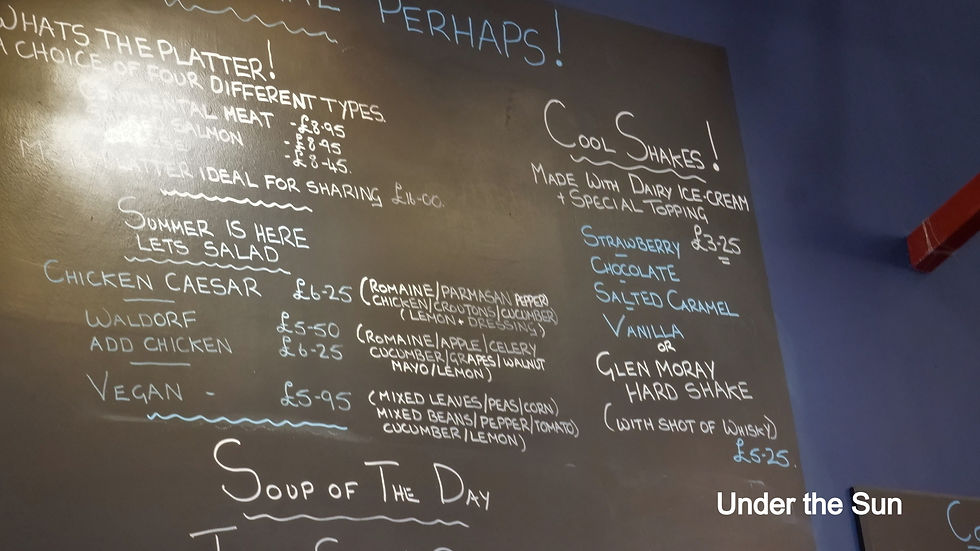 PERHAPS!
WHATS THE PLATTER!
A CHOICE OF FOUR DIFFERENT TYPES.
CONTINENTAL MEAT - £8.95
SALMON - £8.95
- £8.45.
PLATTER IDEAL FOR SHARING £16.00.
SUMMER IS HERE
LETS SALAD
CHICKEN CAESAR £6-25 (ROMAINE/PARMASAN PEPPER/
CHICKEN/CROUTONS/CUCUMBER/
(LEMON + DRESSING)
WALDORF £5-50 (ROMAINE/APPLE/CELERY
ADD CHICKEN £6-25 CUCUMBER/GRAPES/WALNUT
MAYO/LEMON)
VEGAN - £5-95 (MIXED LEAVES/PEAS/CORN)
MIXED BEANS/PEPPER/TOMATO)
CUCUMBER/LEMON)
SOUP OF THE DAY
COOL SHAKES!
MADE WITH DAIRY ICE-CREAM
+ SPECIAL TOPPING
STRAWBERRY £3-25
CHOCOLATE
SALTED CARAMEL
VANILLA
OR
GLEN MORAY
HARD SHAKE
(WITH SHOT OF WHISKY)
£5-25.
Under the Sun